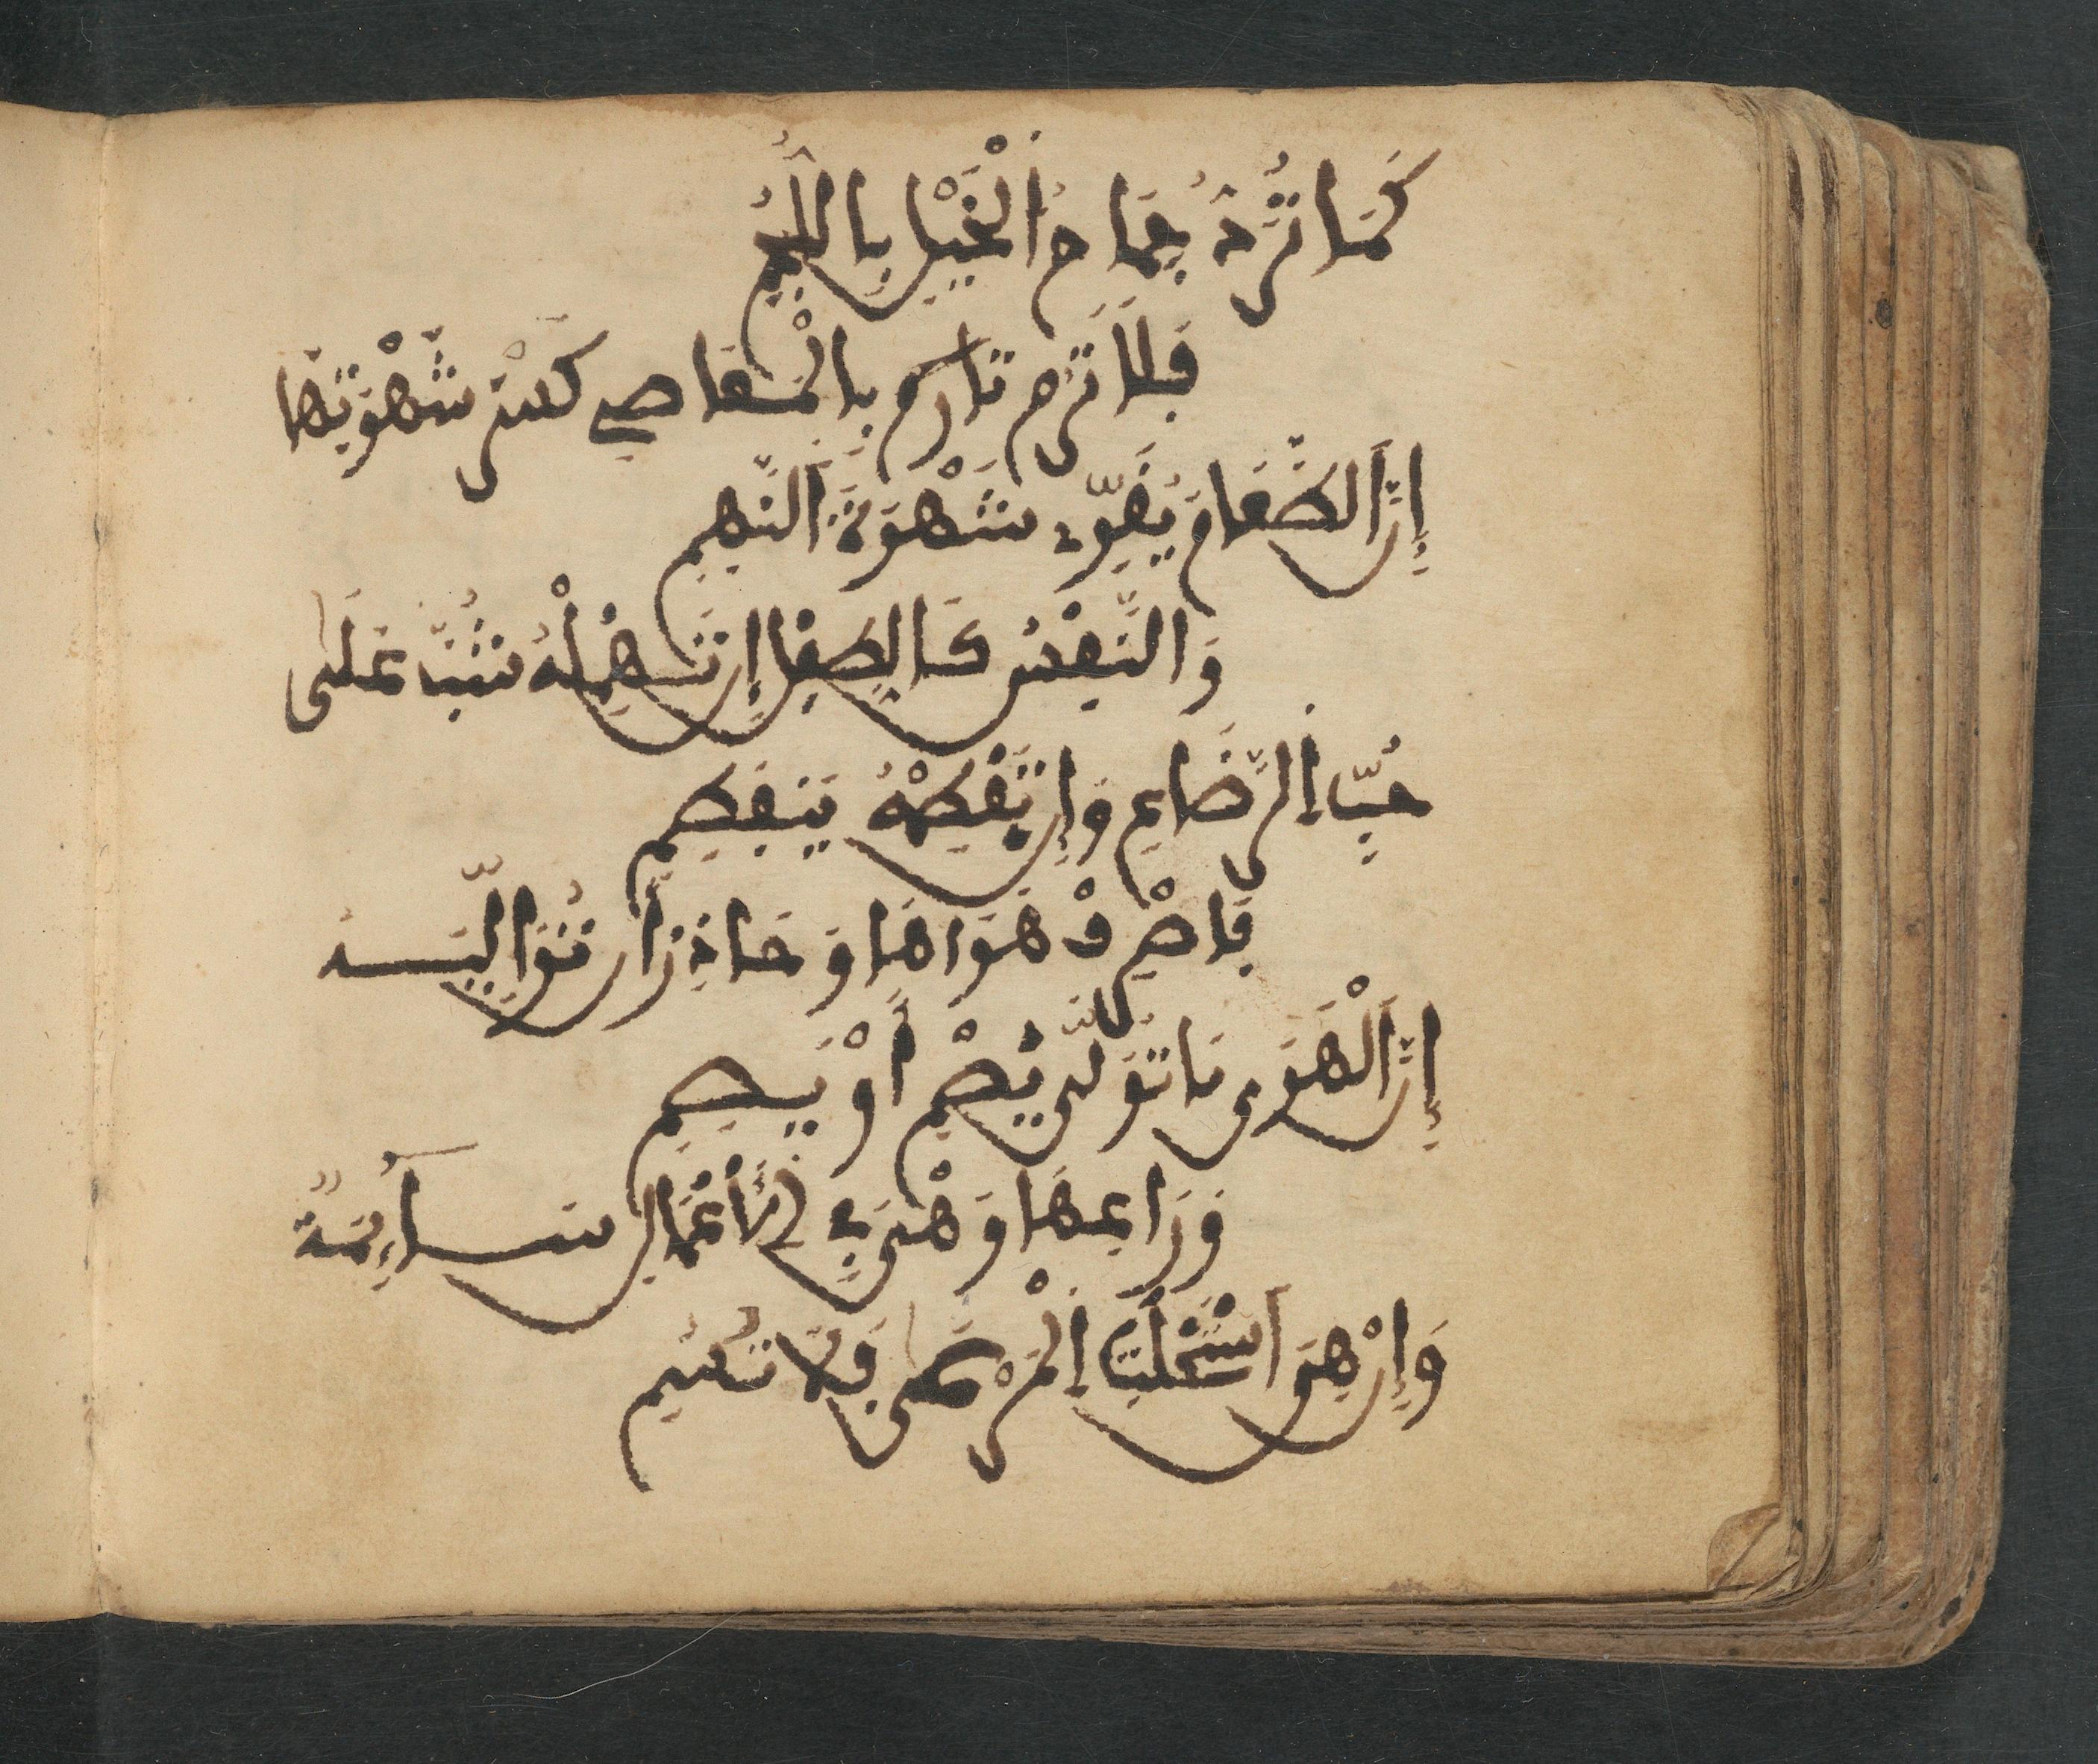 كَمَا تُرَدُّ جِمَاحُ الْخَيْلِ بِاللُّجُمِ
فَلَا تَرُمْ تارم بِالْمَعَاصِي كَسْرَ شَهْوَتِهَا
إِنَّ الطَّعَامَ يُقَوِّي شَهْوَةَ النَّهِمِ
وَالنَّفْسُ كَالطِّفْلِ إِنْ تَهْمِلْهُ شَبَّ عَلَى
حُبِّ الرَّضَاعِ وَإِنْ تَفْطِمْهُ يَنْفَطِمِ
فَاصْرِفْ هَوَاهَا وَحَاذِرْ أَنْ تُوَالِيَهُ
إِنَّ الْهَوَى مَا تَوَلَّى يُصْمِ أَوْ يَصِمِ
وَرَاعِهَا وَهْيَ فِي الْأَعْمَالِ سَائِمَةٌ
وَإِنْ هِيَ اسْتَحْلَتِ الْمَرْعَى فَلَا تُسِمِ